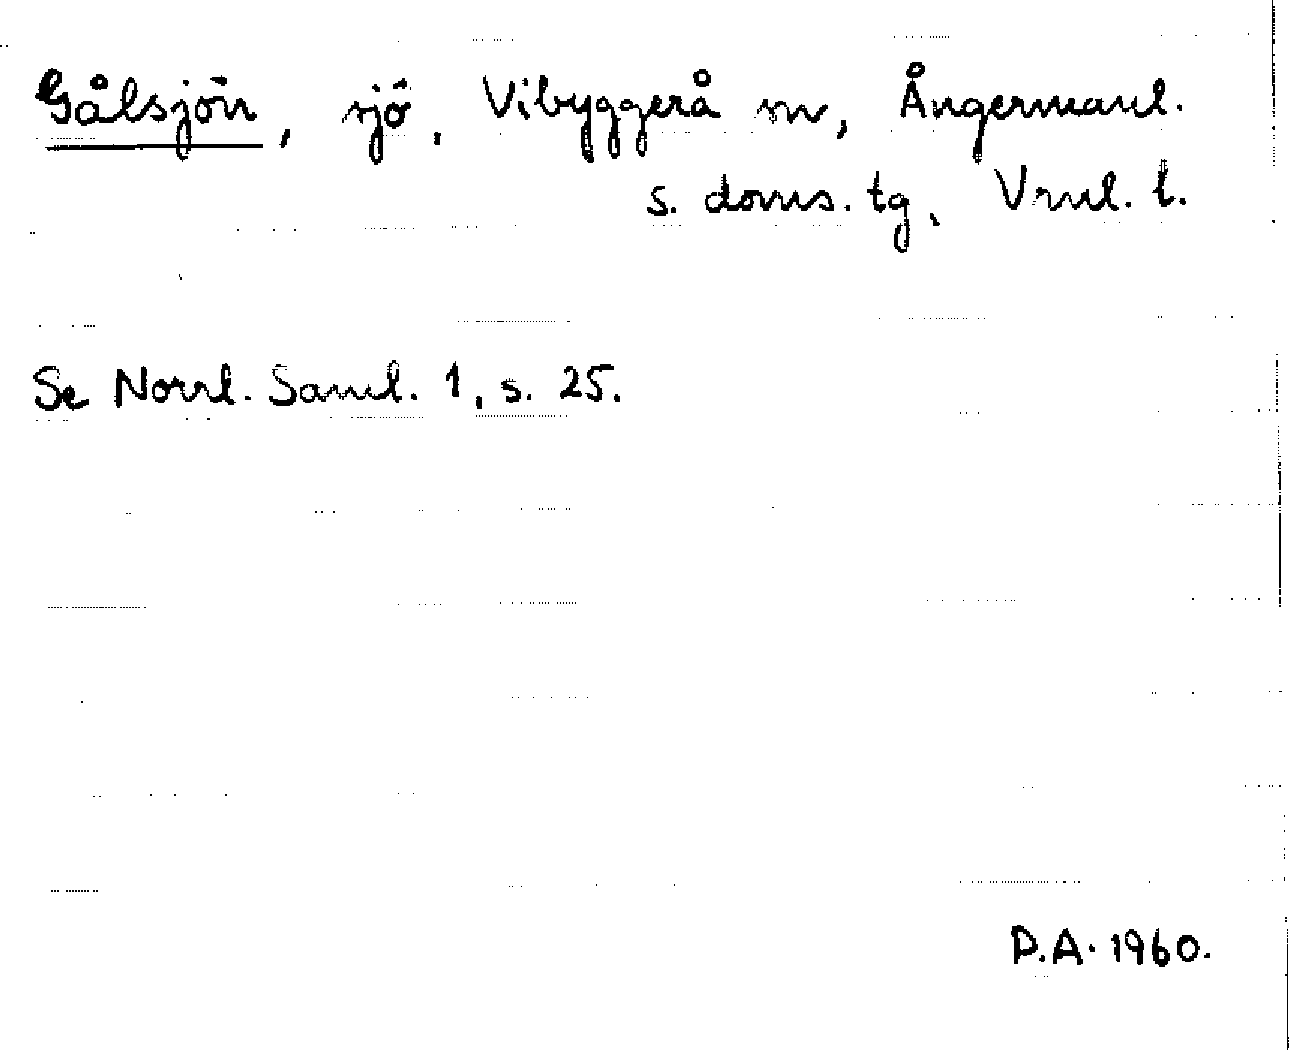 Gålsjön, sjö, Vibyggerå sn, Ångermanl.
s. doms. tg, Vrnl. l.
Se Norrl. Saml. 1, s. 25.
D.A. 1960.